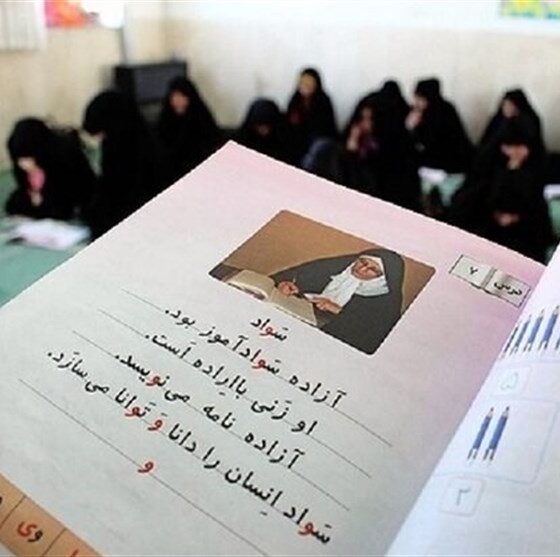 درس ۷
سَواد
آزاده سَوادآموز بود.
او زَنی بااِراده اَست.
آزاده نامه می‌نویسد.
سَواد اِنسان را دانا وَ تَوانا می‌سازَد.
و
وی
۵
۲